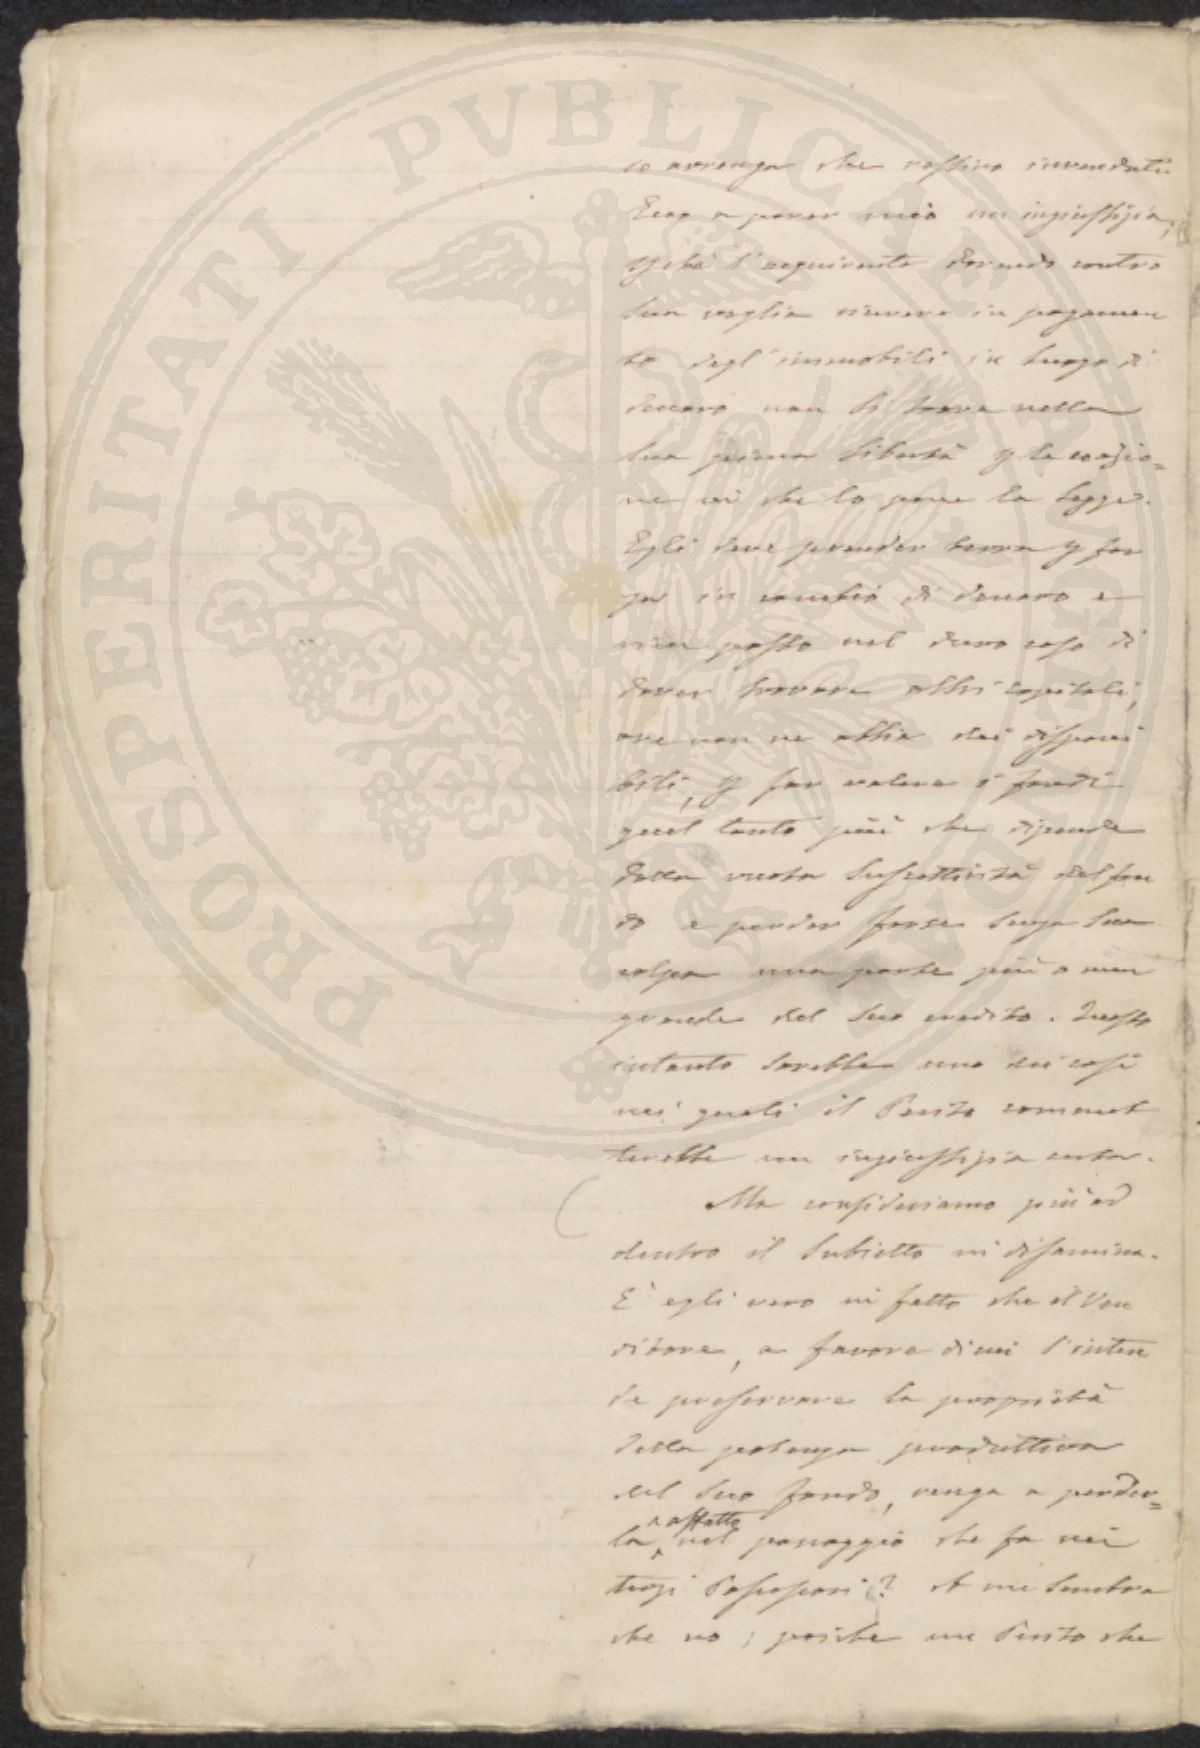 PROSPERITATI PVBLICAE AVGENDAE
se avvenga che restino invenduti.
Ecco a parer mio un ingiustizia,
chè l'acquirente dovendo contro
sua voglia ricevere in pagamen
to degl'immobili in luogo di
denaro non si trova nella
sua piena libertà la condizio=
ne in che lo pone la legge.
Egli deve prender terra for
za in cambio di denaro e
vien posto nel duro caso di
dover trovare altri capitali,
ove non ne abbia dei disponi
bili, far valere i fondi
quel tanto più che dipende
dalla vuota suscettività del fon
do e perder forse senza sua
colpa una parte più o men
grande del suo credito. Questo
intanto sarebbe uno dei casi
nei quali il Perito commet
terebbe un ingiustizia certa.
Ma consideriamo più ad
dentro il subietto in disamina.
È egli vero in fatto che il Ven
ditore, a favore di cui s'inten
de preservare la proprietà
della potenza produttiva
del suo fondo, venga a perder=
la affatto nel passaggio che fa nei
terzi Possessori? A me sembra
che no; poiché un Perito che